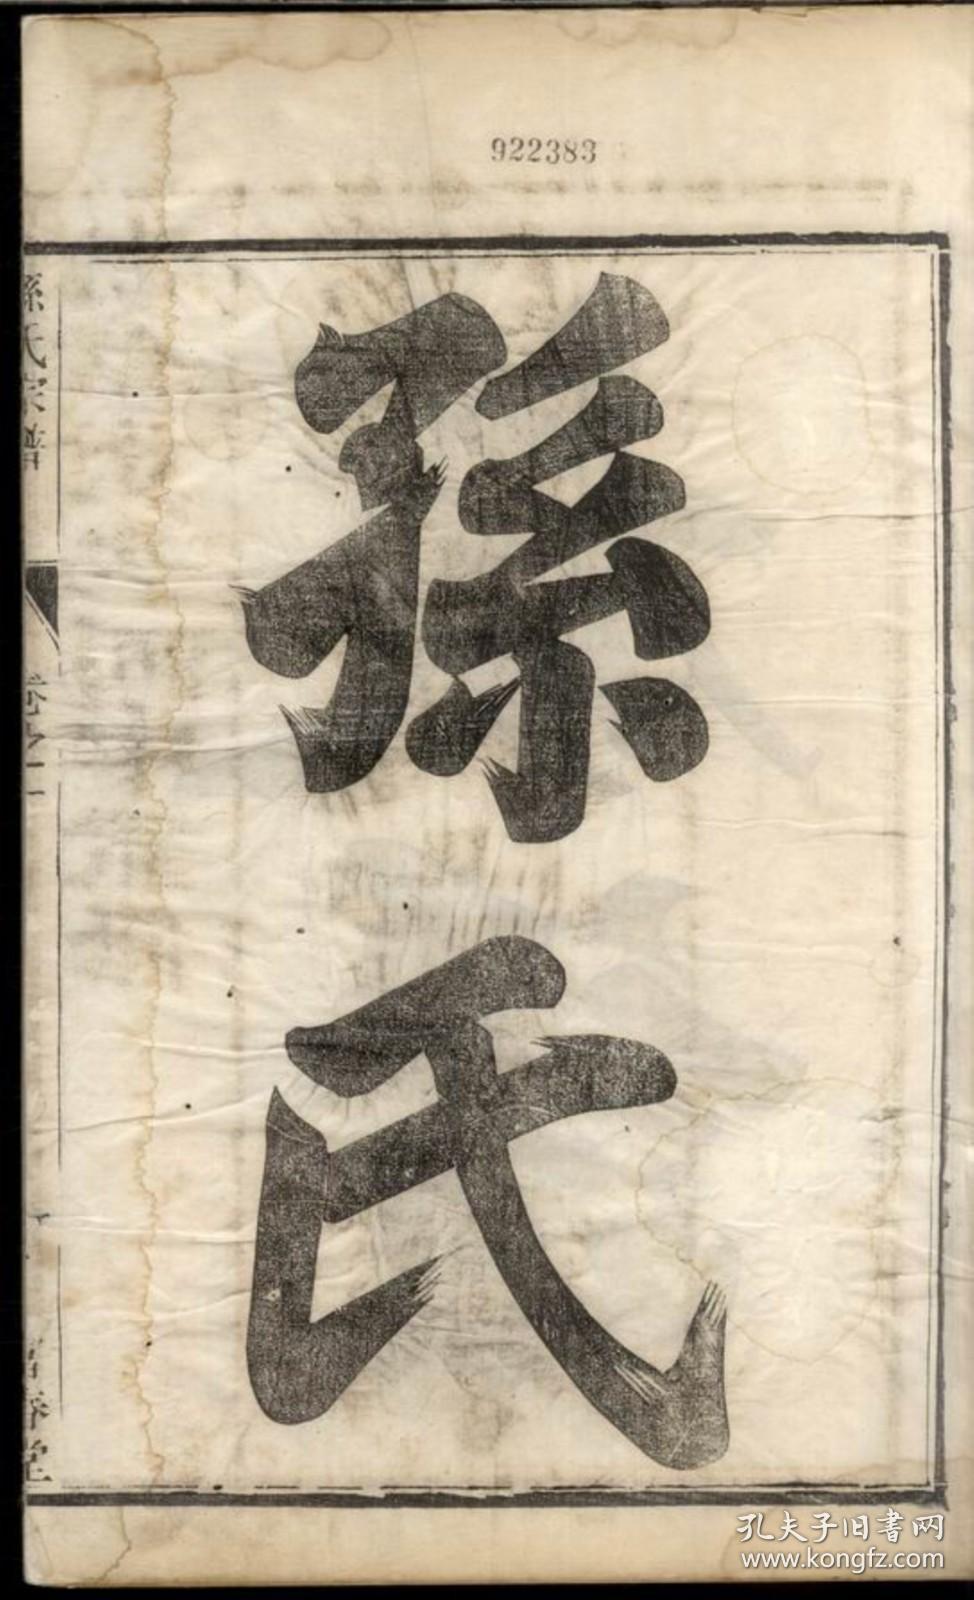 922383
孫氏
孫氏宗譜
卷之一
孔夫子旧書网
www.kongfz.com